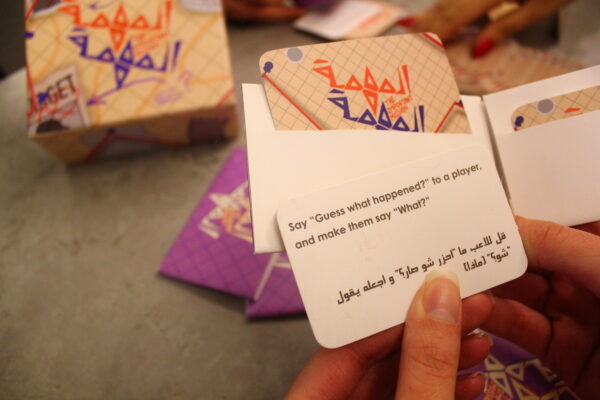 المهمة
المهمة
TARGET
المهمة
المهمة
Say “Guess what happened?” to a player,
and make them say “What?”
قل للاعب ما "احزر شو صار؟" و اجعله يقول
"شو؟" (ماذا)